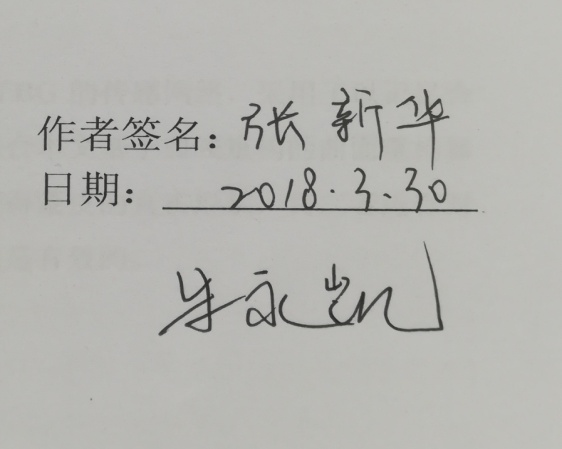 作者签名：张新华
日期：2018.3.30
朱永凯